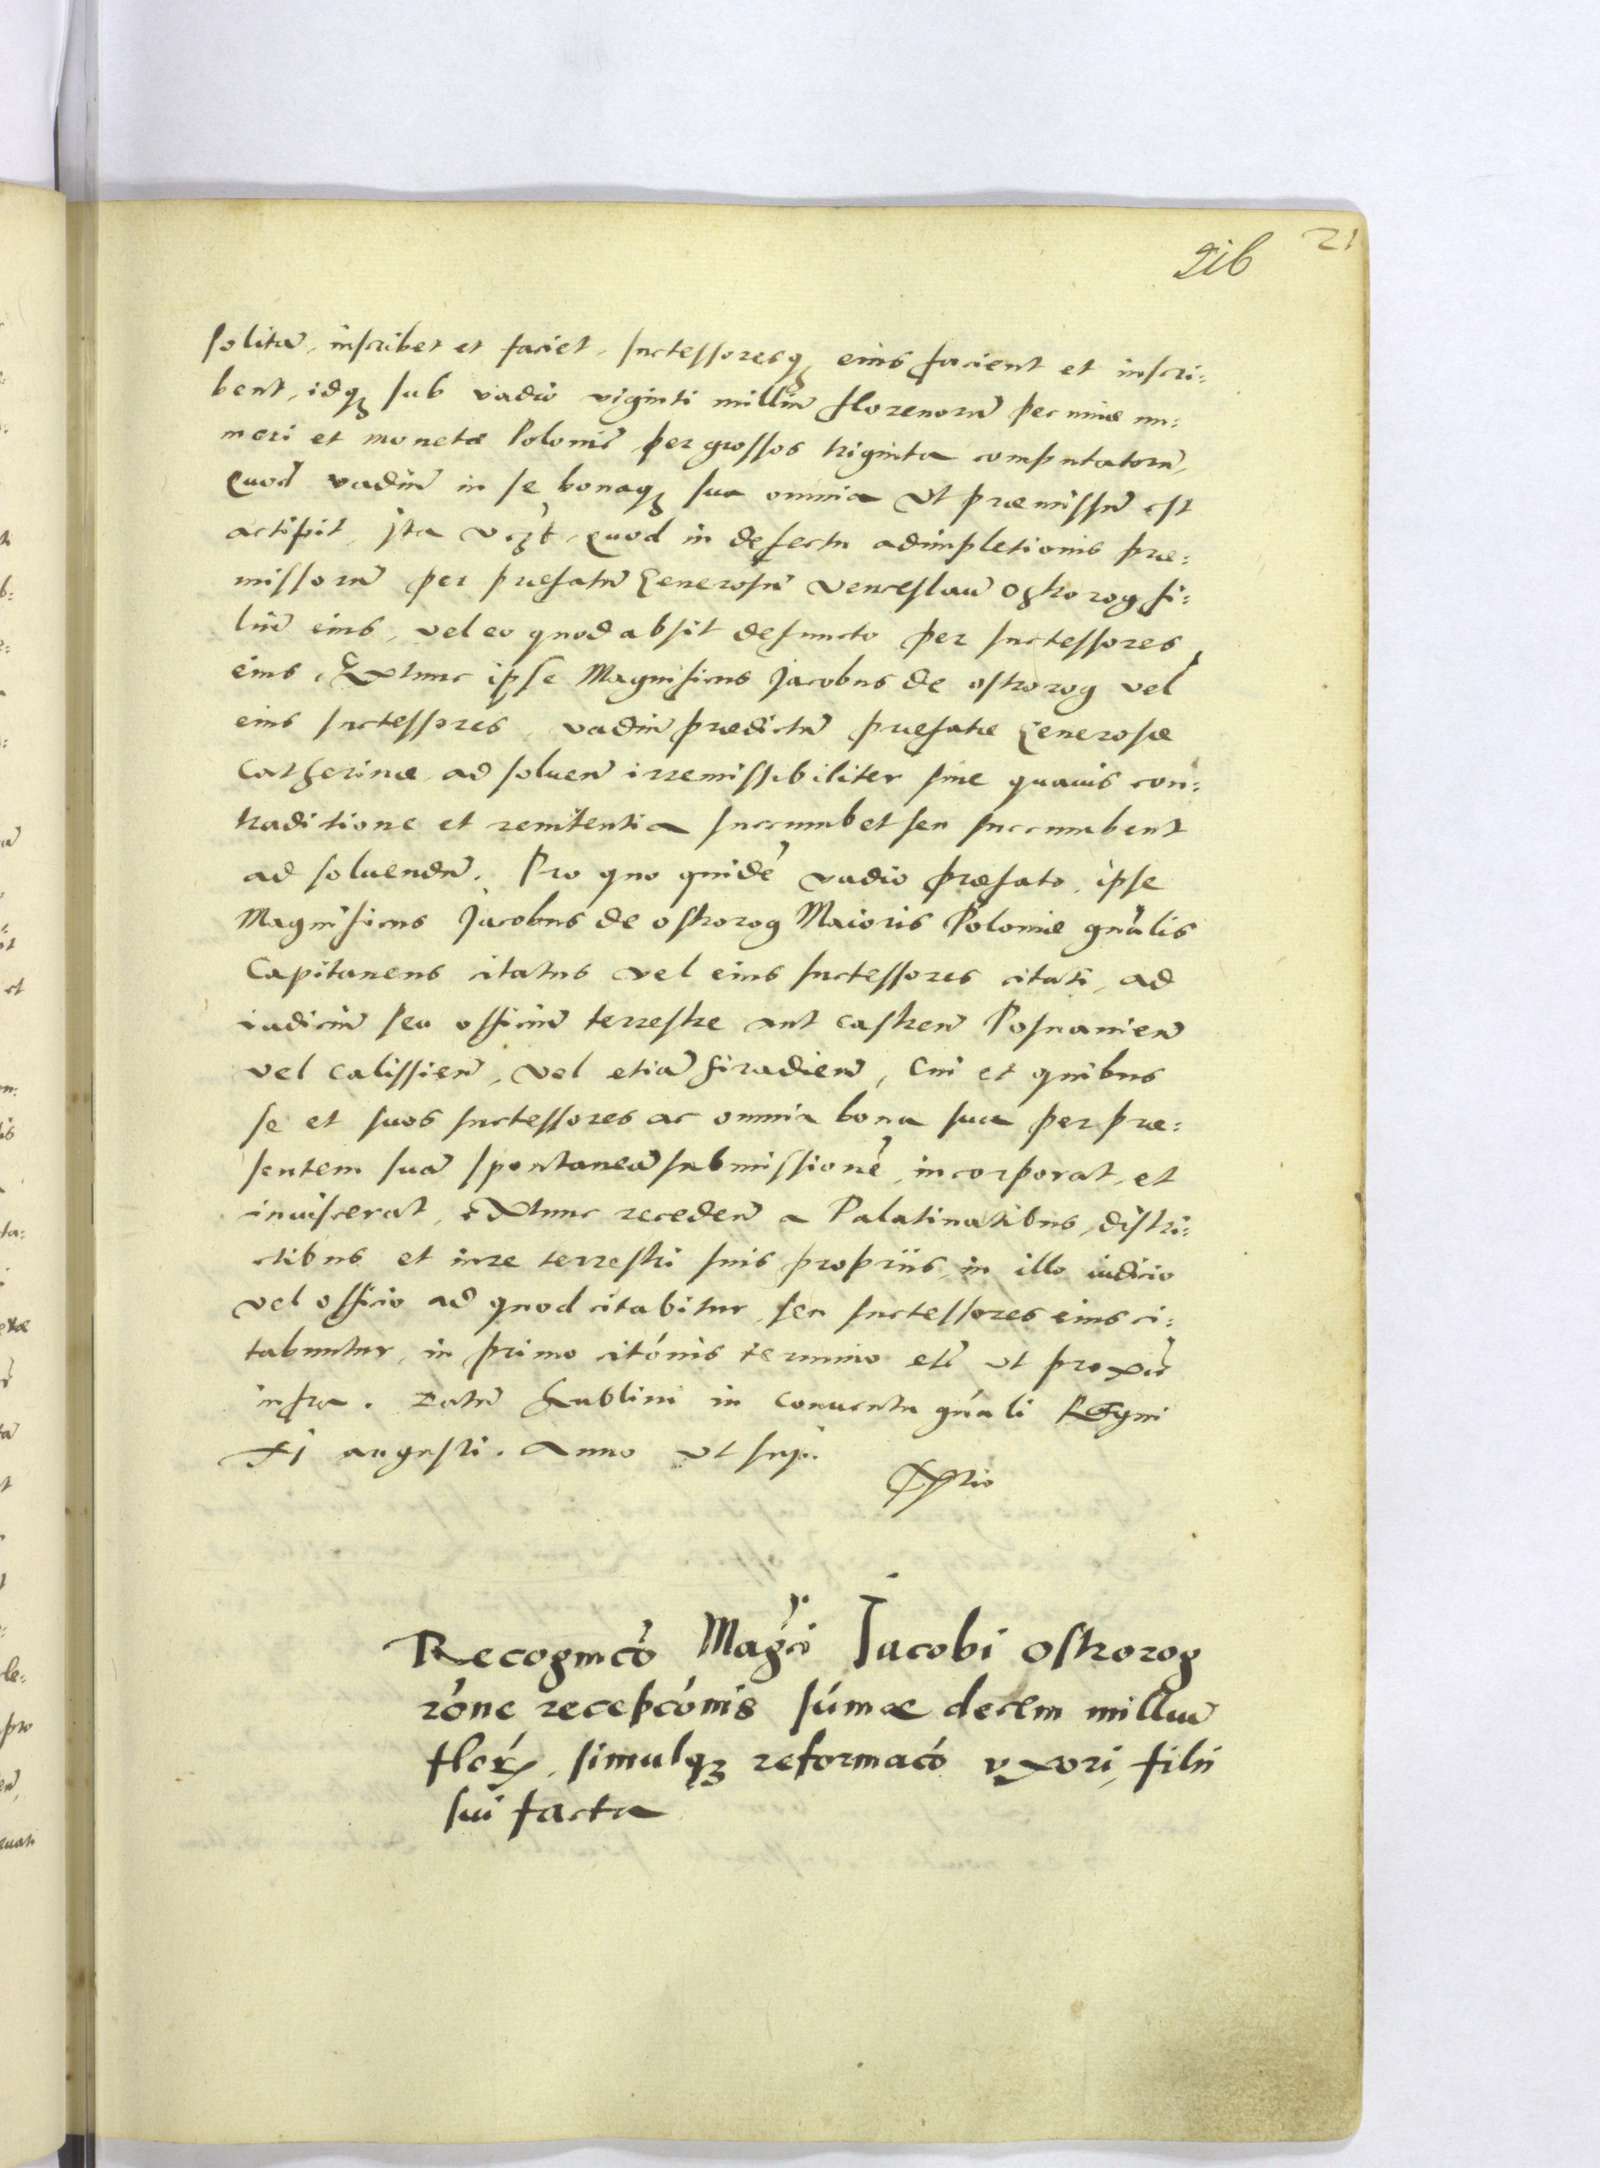 216 21
solitã, inscribet et faciet, successoresqꝫ eius facient et inscri=
bent, idqꝫ sub vadio viginti milliũ florenorũ pecuniæ nu=
meri et monetæ Poloniæ per grossos triginta computatorũ,
Quod vadiũ in se bonaqꝫ sua omnia ut præmissũ est
accipit, Ita vczt, Quod in defectu adimpletionis præ=
missorũ per præfatũ Generosũ Venceslaũ Ostrorog fi=
liũ eius, vel eo quod absit defuncto per successores
eius, Extunc ipse Magnificus Jacobus de Ostrorog vel
eius successores, vadiũ prædictũ præfatæ Generosæ
Catherinæ, ad soluen̄ irremissibiliter sine quauis con=
tradictione et renitentia succumbet seu succumbent
ad soluendũ. Pro quo quidē vadio præfato, ipse
Magnificus Jacobus de Ostrorog Maioris Poloniæ gnãlis
Capitaneus citatus vel eius successores citati, ad
iudiciũ seu officiũ terrestre aut castren̄ Posnanien̄
vel Calissien̄, vel etiã Siradien̄, Cui et quibus
se et suos successores ac omnia bona sua per præ=
sentem suã spontaneã submissionē, incorporat, et
inuiscerat, Extunc receden̄ a Palatinatibus, distri=
ctibus et iure terrestri suis propriis, in illo iudicio
vel officio ad quod citabitur, seu successores eius ci=
tabuntur, in primo citónis termino etc̃ ut proxiẽ
infra. Datũ Lublini in Conuentu gñali Regni
XI Augusti. Anno ut sup̃.
Recognicó Mag͂ci Jacobi Ostrorog
róne recepcónis súmæ decem milliũ
florꝝ, simulqꝫ reformacó uxori filii
sui facta